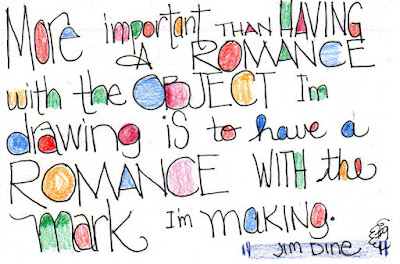 More important THAN HAVING
A ROMANCE
with the OBJECT I'm
drawing is to have a
ROMANCE WITH the
mark I'm making.
Jim Dine